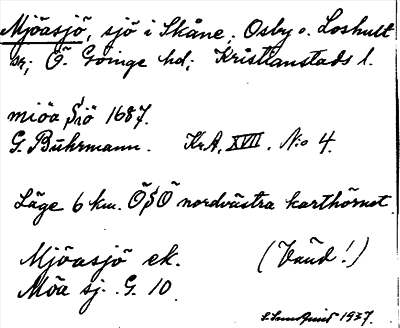 Mjöasjö, sjö i Skåne. Osby o. Loshult
sr; Ö. Göinge hd; Kristianstads l.
miöa Siö 1687.
G. Buhrmann. Kr.A. XVII. N:o 4.
Läge 6 km. ÖSÖ nordvästra karthörnet.
Mjöasjö ek. (Vänd!)
Möa sj. G. 10.
1937.